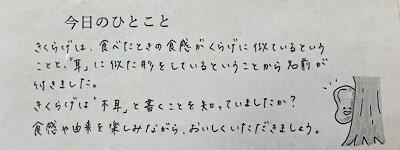 今日のひとこと
きくらげは、食べたときの食感がくらげに似ているという
ことと、「耳」に似た形をしているということから名前が
付きました。
きくらげは「木耳」と書くことを知っていましたか?
食感や由来を楽しみながら、おいしくいただきましょう。